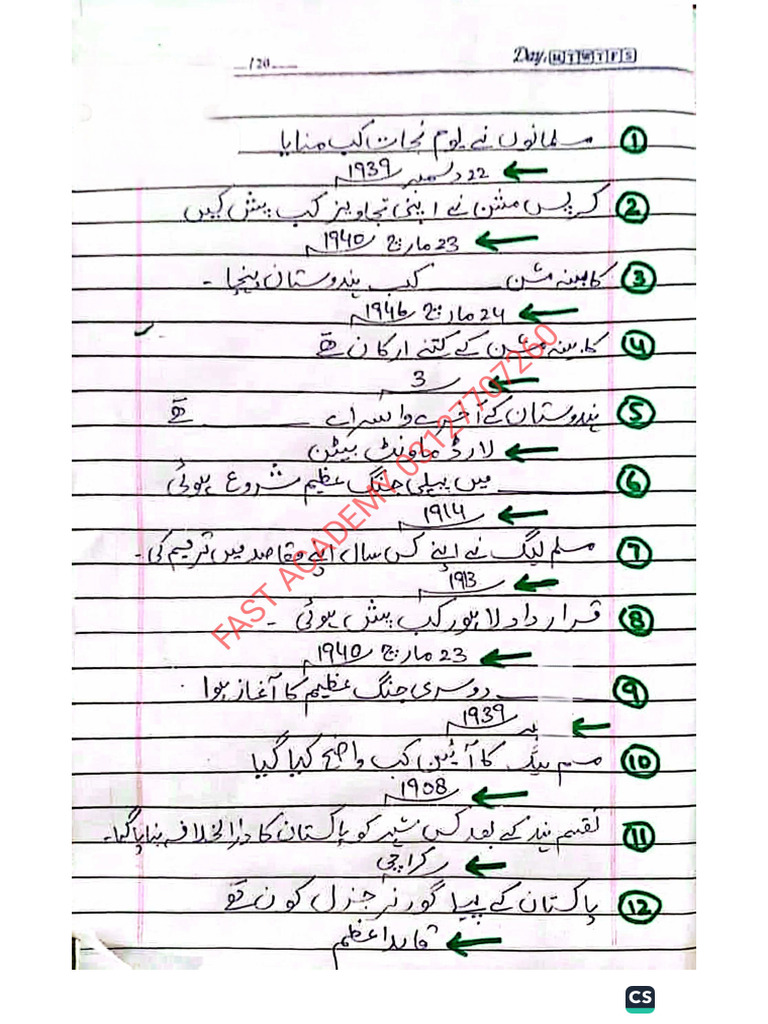 __/20___ Day. M T W T F S
① مسلمانوں نے یوم نجات کب منایا
← 22 دسمبر 1939ء
② کرپس مشن نے اپنی تجاویز کب پیش کیں
← 23 مارچ 1940ء
③ کابینہ مشن ______ کب ہندوستان پہنچا ۔
← 24 مارچ 1946ء
④ کابینہ مشن کے کتنے ارکان تھے
← 3
⑤ ہندوستان کے آخری وائسرائے ______ تھے
← لارڈ ماونٹ بیٹن
⑥ ______ میں پہلی جنگ عظیم شروع ہوئی
← 1914ء
⑦ مسلم لیگ نے اپنے کس سال اپنے مقاصد میں ترمیم کی ۔
← 1913ء
⑧ قرارداد لاہور کب پیش ہوئی ۔
← 23 مارچ 1940ء
⑨ ______ دوسری جنگ عظیم کا آغاز ہوا
← 1939ء
⑩ کا آئین کب واضح کیا گیا
← 1908ء
⑪ تقسیم ہند کے بعد کس شہر کو پاکستان کا دارالخلافہ بنایا گیا ۔
← کراچی
⑫ پاکستان کے پہلے گورنر جنرل کون تھے
← قائداعظم
FAST ACADEMY 03127707260
CS